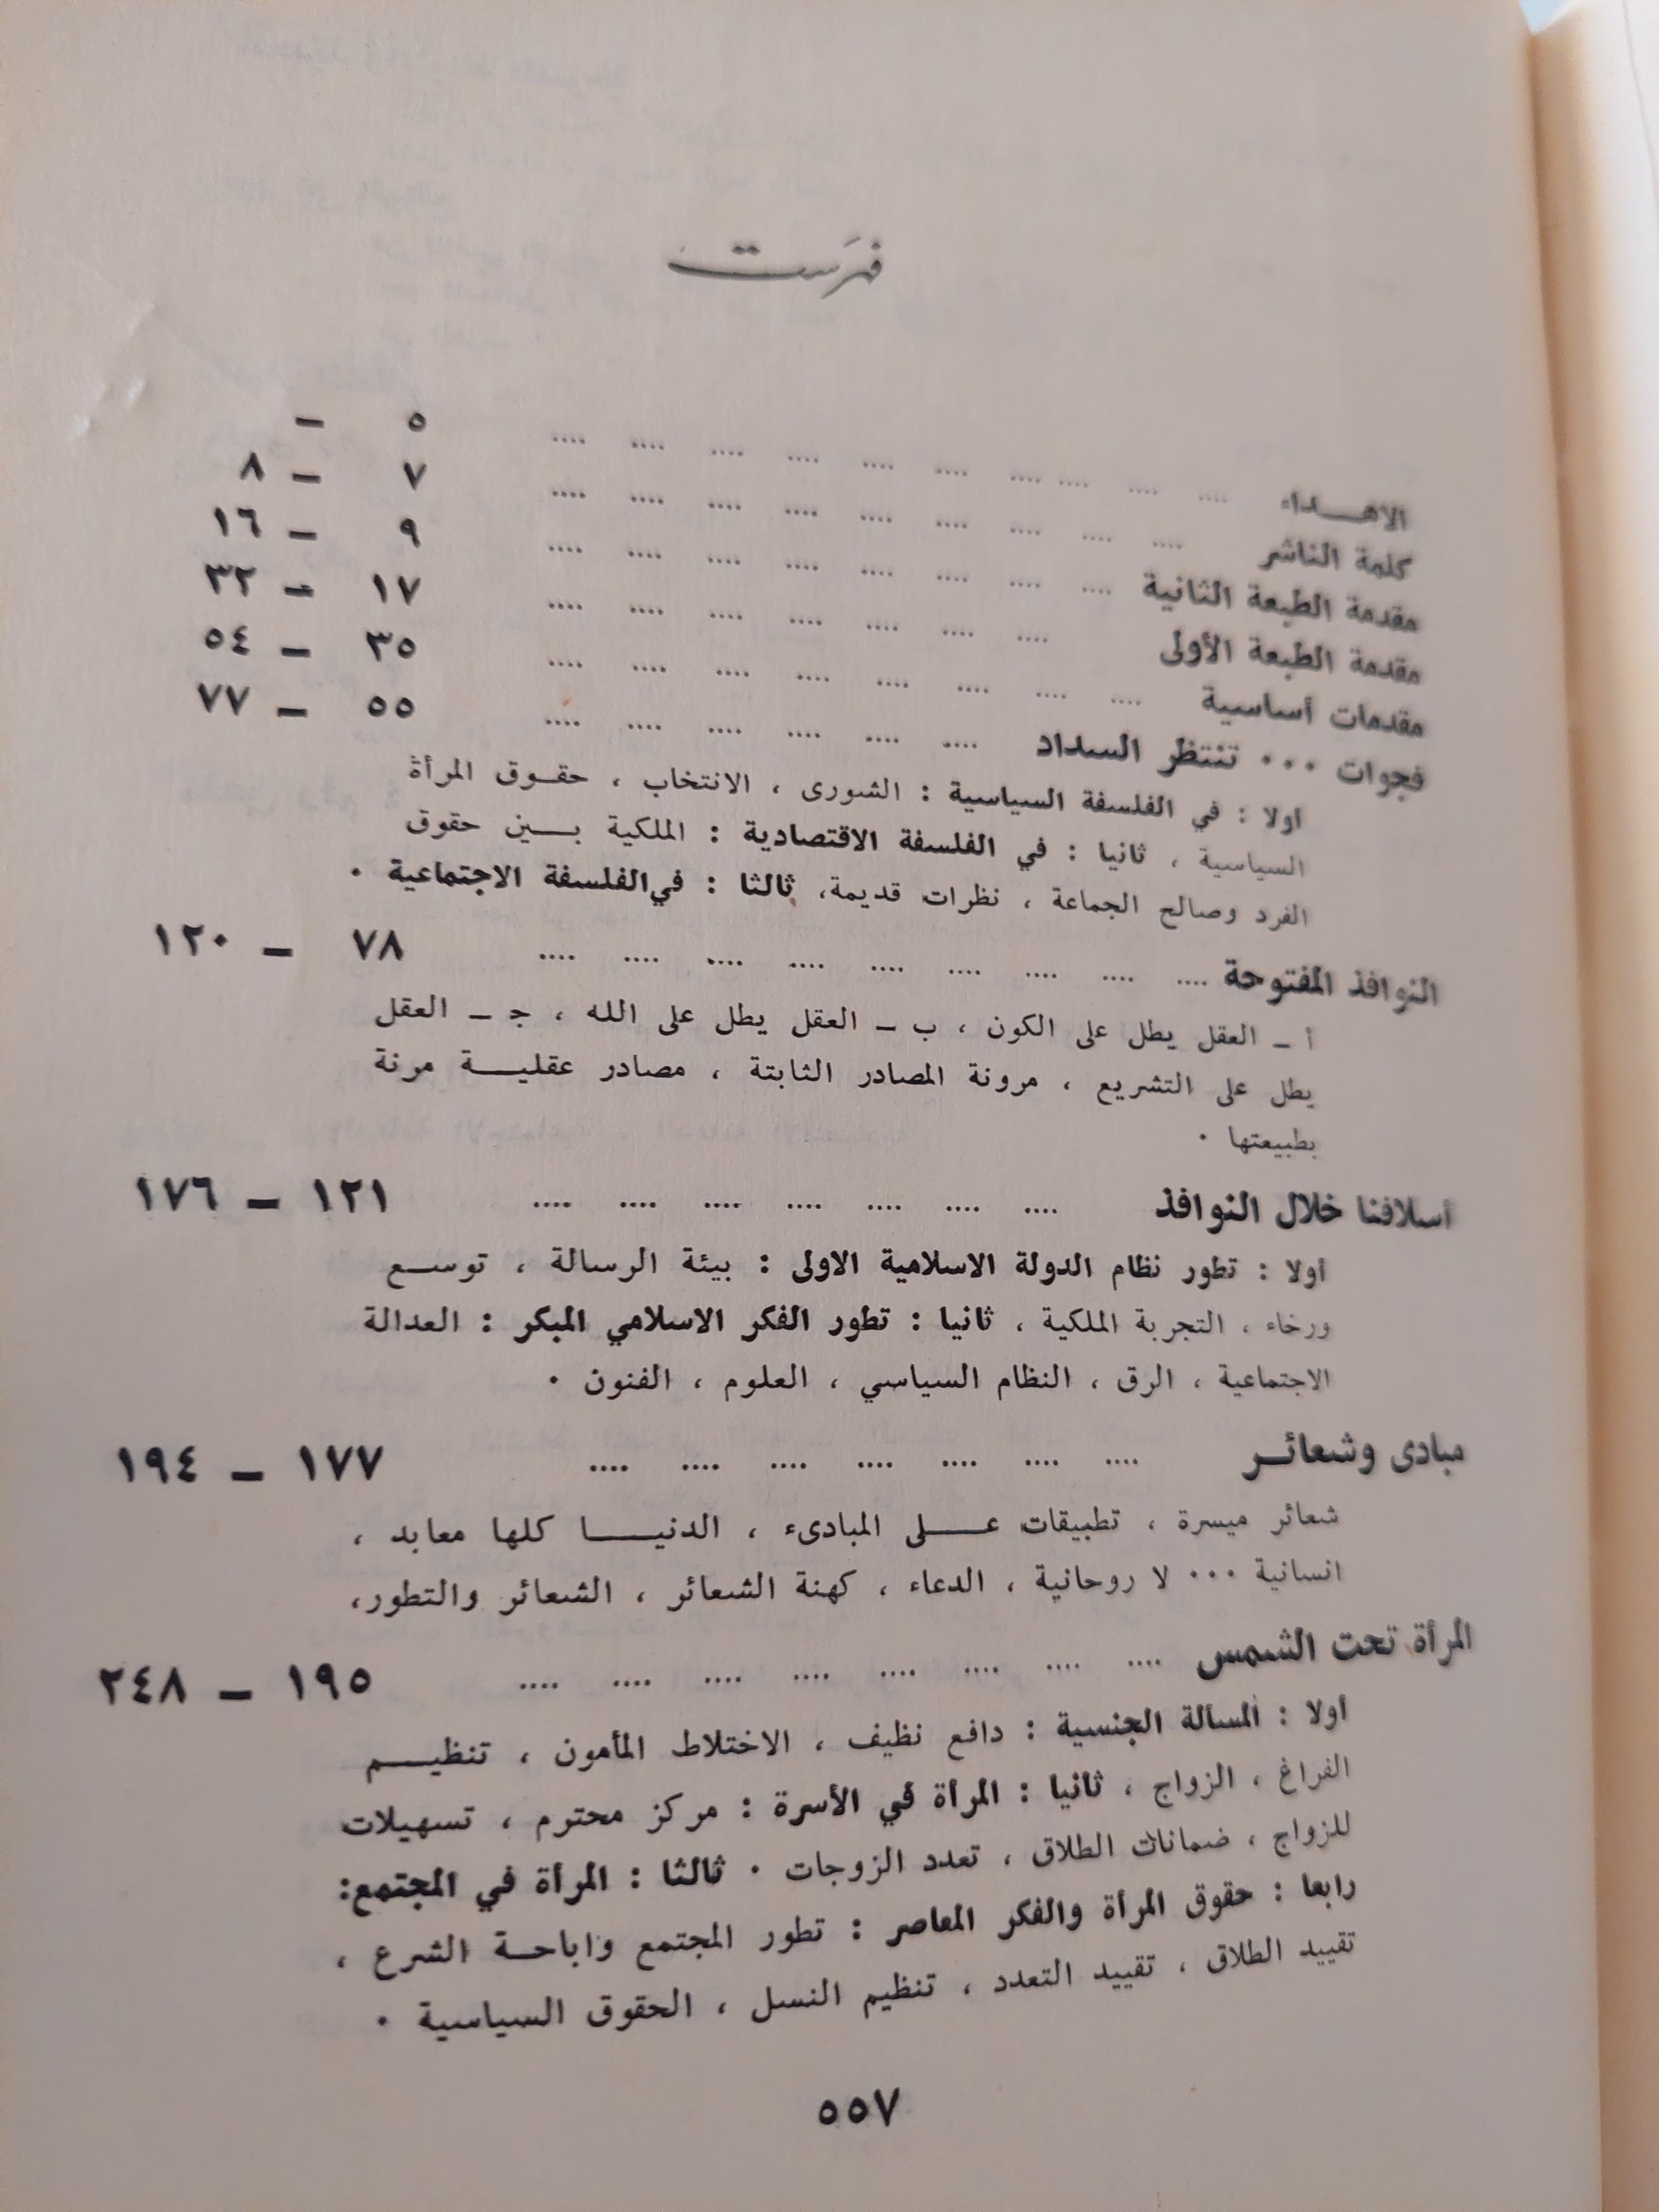 فهرست
الاهـــداء .... .... .... .... .... .... .... .... .... .... ٥ –
كلمة الناشر .... .... .... .... .... .... .... .... .... ٧ – ٨
مقدمة الطبعة الثانية .... .... .... .... .... .... .... .... ٩ – ١٦
مقدمة الطبعة الأولى .... .... .... .... .... .... .... ١٧ – ٣٢
مقدمات أساسية .... .... .... .... .... .... .... .... ٣٥ – ٥٤
فجوات ... تنتظر السداد .... .... .... .... .... .... ٥٥ – ٧٧
اولا : في الفلسفة السياسية : الشورى ، الانتخاب ، حقـوق المرأة
السياسية ، ثانيا : في الفلسفة الاقتصادية : الملكية بـــين حقوق
الفرد وصالح الجماعة ، نظرات قديمة، ثالثا : في الفلسفة الاجتماعية .
النوافذ المفتوحة .... .... .... .... .... .... .... .... .... ٧٨ – ١٢٠
أ – العقل يطل على الكون ، ب – العقل يطل على الله ، جـ – العقل
يطل على التشريع ، مرونة المصادر الثابتة ، مصادر عقليـــة مرنة
بطبيعتها .
أسلافنا خلال النوافذ .... .... .... .... .... .... .... ١٢١ – ١٧٦
أولا : تطور نظام الدولة الاسلامية الاولى : بيئة الرسالة ، توســع
ورخاء ، التجربة الملكية ، ثانيا : تطور الفكر الاسلامي المبكر : العدالة
الاجتماعية ، الرق ، النظام السياسي ، العلوم ، الفنون .
مبادى وشعائـــر .... .... .... .... .... .... .... ١٧٧ – ١٩٤
شعائر ميسرة ، تطبيقات عـــلى المبادىء ، الدنيـــا كلها معابد ،
انسانية ... لا روحانية ، الدعاء ، كهنة الشعائر ، الشعائر والتطور،
المرأة تحت الشمس .... .... .... .... .... .... .... .... ١٩٥ – ٢٤٨
أولا : المسالة الجنسية : دافع نظيف ، الاختلاط المأمون ، تنظيـــم
الفراغ ، الزواج ، ثانيا : المرأة في الأسرة : مركز محترم ، تسهيلات
للزواج ، ضمانات الطلاق ، تعدد الزوجات . ثالثا : المرأة في المجتمع:
رابعا : حقوق المرأة والفكر المعاصر : تطور المجتمع واباحـة الشرع ،
تقييد الطلاق ، تقييد التعدد ، تنظيم النسل ، الحقوق السياسية .
٥٥٧